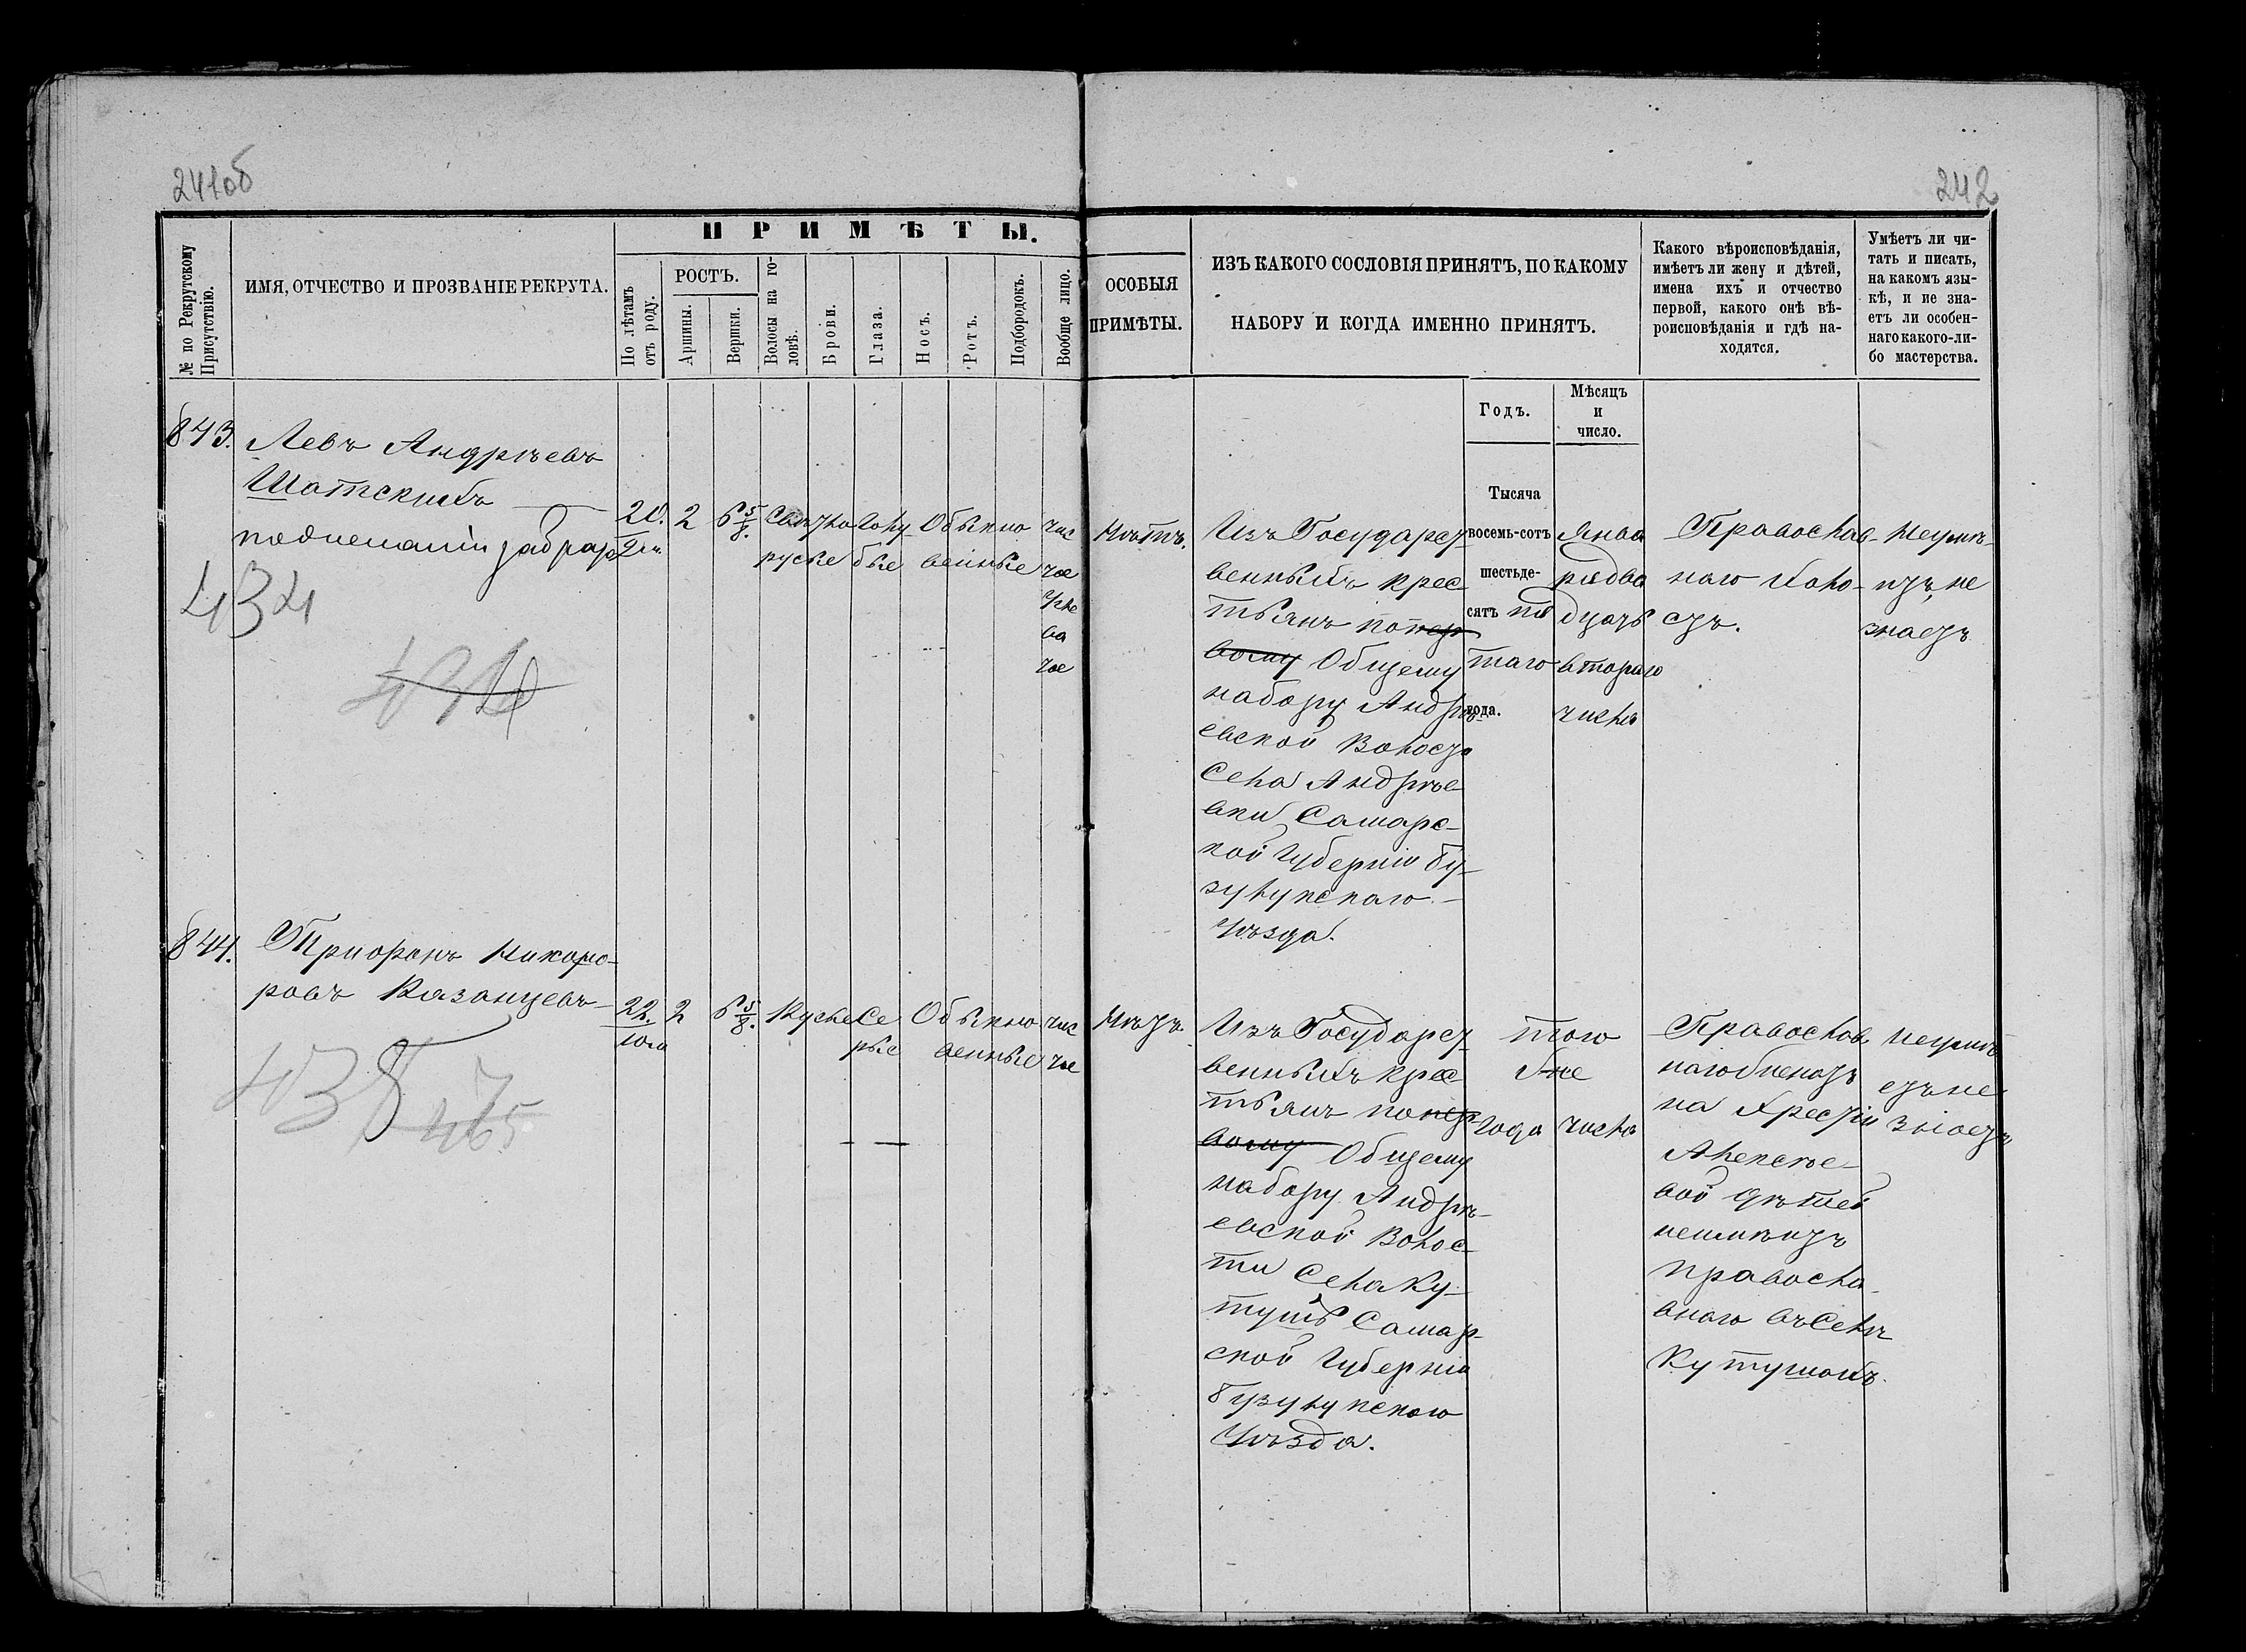 241об
242
ПРИМѢТЫ.
№ по Рекрутскому Присутствію.
ИМЯ, ОТЧЕСТВО И ПРОЗВАНІЕ РЕКРУТА.
По лѣтамъ отъ роду.
РОСТЪ.
Аршины.
Вершки.
Волосы на го-
ловѣ.
Брови.
Глаза.
Носъ.
Ротъ.
Подбородокъ.
Вообще лицо.
ОСОБЫЯ
ПРИМѢТЫ.
ИЗЪ КАКОГО СОСЛОВІЯ ПРИНЯТЪ, ПО КАКОМУ
НАБОРУ И КОГДА ИМЕННО ПРИНЯТЪ.
Какого вѣроисповѣданія,
имѣетъ ли жену и дѣтей,
имена ихъ и отчество
первой, какого онѣ вѣ-
роисповѣданія и гдѣ на-
ходятся.
Умѣетъ ли чи-
тать и писать,
на какомъ язы-
кѣ, и не зна-
етъ ли особен-
наго какого-ли-
бо мастерства.
Годъ.
Мѣсяцъ
и
число.
843.
Левъ Андрѣевъ
Шатскихъ
434
20.
2
6 5/8.
Свѣтло
русые
Голу
бые
Обыкно
венные
чис
тое
Нѣтъ.
Изъ Государст-
венныхъ крес
тьянъ по пер
вому Общему
набору Андрѣ-
евской Волости
Села Андрѣе
вки Самарс-
кой Губерніи Бу-
зулукскаго
Уѣзда.
Тысяча
восемь-сотъ
шестьде-
сятъ пя
таго
года.
Янва
ря два
дцать
втораго
числа
Православ-
наго холо-
стъ.
Неумѣ-
етъ, не
знаетъ
844.
Трифонъ Никифо-
ровъ Казанцевъ
22.
2
6 5/8.
Русые
Се
рые
Обыкно
венные
чис
тое
Нѣтъ.
Изъ Государст-
венныхъ крес
тьянъ по пер-
вому Общему
набору Андрѣ-
евской Волос-
ти Села Ку-
тушъ Самар-
ской Губерніи
Бузулукскаго
Уѣзда.
того
же
года
числа
Православ
наго женатъ
на Хрестіи
Алексѣе-
вой дѣтей
неимѣетъ
Правосла-
внаго въ Селѣ
Кутушахъ.
Неумѣ
етъ не
знаетъ